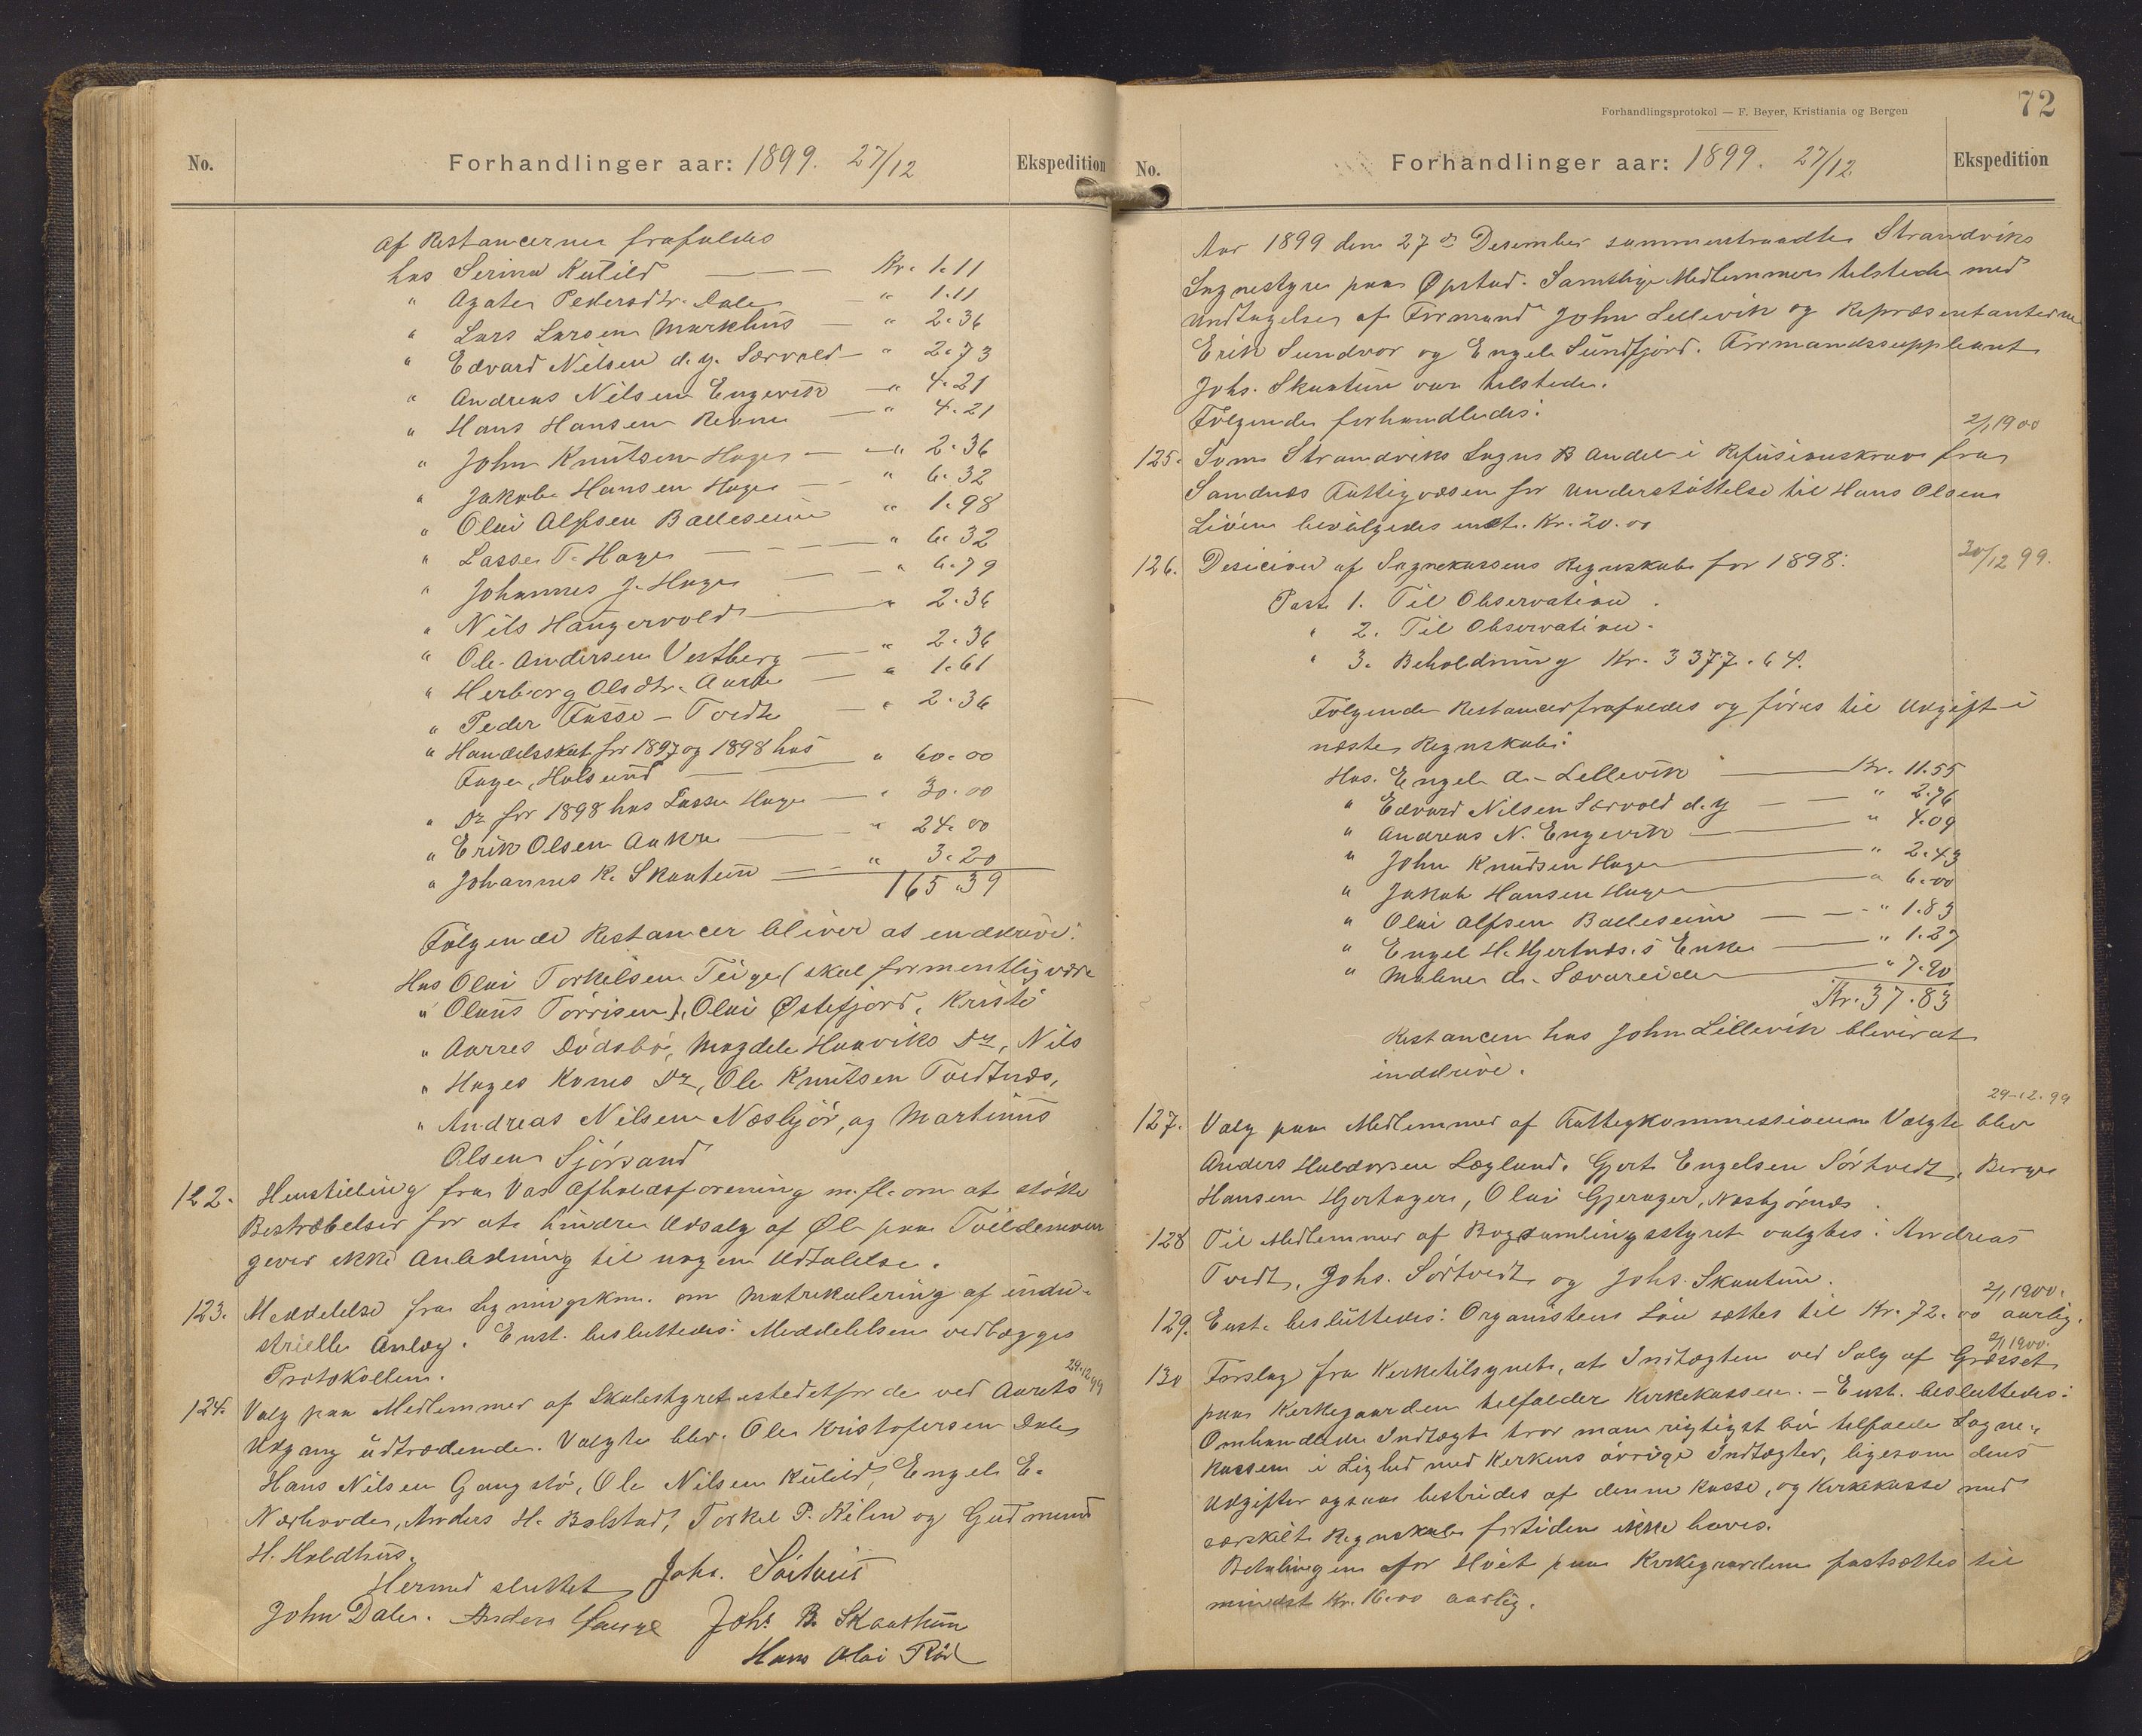 No.
Forhandlinger aar: 1899. 27/12
Ekspedition
Af Restancerne frafaldes
hos Serina Kutild — Kr. 1.11
" Agate Pedersdtr. Dale — " 1.11
" Lars Larsen Markhus — " 2.36
" Edvard Nilsen d.y. Særvold — " 2.73
" Andreas Nilsen Engevik — " 4.21
" Hans Hansen Revne — " 4.21
" John Knutsen Hage — " 2.36
" Jakob Hansen Hage — " 6.32
" Olai Alfsen Balleseim " 1.98
" Lasse T. Hage — " 6.32
" Johannes J. Hage — " 6.79
" Nils Haugervold — " 2.36
" Ole Andersen Vestberg — " 2.36
" Herborg Olsdtr. Aarke — " 1.61
" Peder Fusse-Tvedt — " 2.36
" Handelsskat for 1897 og 1898 hos
Fage, Holsund — " 60.00
" Do for 1898 hos Lasse Hage — " 30.00
" Erik Olsen Aakre — " 24.00
" Johannes K. Skaatun — " 3.20
165.39
Følgende Restancer bliver at inddrive:
Hos Olai Torkelsen Teige (skal formentlig være
" Olaus Tørrisen), Olai Østefjord, Kristi
" Aarres Dødsbo, Magdele Haaviks Do, Nils
" Hages Kones Do, Ole Knutsen Tvedtnæs,
" Andreas Nilsen Næsbjør, og Martinus
Olsen Sjørsand
122. Henstilling fra Vas Afholdsforening m. fl. om at støtte
Bestræbelser for at hindre Udsalg af Øl paa Tvildemoen
giver ikke Anledning til nogen Udtalelse.
123. Meddelelse fra Ligningskm. om Matrikulering af indu-
strielle Anlæg. Enst. besluttedes: Meddelelsen vedlægges
Protokollen.
29.12.99
124. Valg paa Medlemmer af Skolestyret istedetfor de ved Aarets
Udgang udtrædende. Valgte blev: Ole Kristofersen Dale
Hans Nilsen Gangstø, Ole Nilsen Kutild, Engel E.
Nærhovde, Anders H. Bolstad, Torkel P. Kilen og Gudmund
H. Holdhus.
Hermed sluttet Johs. Sörtveit
John Dale. Anders Hauge Johs B. Skaathun
Hans Olai Röd
Forhandlingsprotokol — F. Beyer, Kristiania og Bergen
72
No.
Forhandlinger aar: 1899. 27/12
Ekspedition
Aar 1899 den 27de Desember sammentraadte Strandviks
Sognestyre paa Øpstad. Samtlige Medlemmer tilstede med
Undtagelse af Formand John Lellevik og Repræsentanterne
Erik Sundvor og Engel Sundfjord. Formandssuppleant
Johs. Skaatun var tilstede.
Følgende forhandledes:
2/1 1900
125. Som Strandviks Sogns Andel i Refusionskrav fra
Sandnæs Fattigvæsen for Understøttelse til Hans Olsen
Liöen bevilgedes enst. Kr. 20.00
126. Desicion af Sognekassens Regnskab for 1898:
30/12 99.
Post 1. Til Observation.
" 2. Til Observation.
" 3. Beholdning Kr. 3377.64.
Følgende Restancer frafaldes og føres til Udgift i
næste Regnskab:
Hos Engel A. Lellevik — Kr. 11.55
" Edvard Nilsen Særvold d.y — " 2.76
" Andreas N. Engevik — " 4.09
" John Knudsen Hage — " 2.43
" Jakob Hansen Hage — " 6.00
" Olai Alfsen Balleseim — " 1.83
" Engel H. Hjertnæs.s Enke — " 1.27
" Malene A. Sævareide — " 7.90
Kr. 37.83
Restancen hos John Lillevik bliver at
inddrive.
29-12.99
127. Valg paa Medlemmer af Fattigkommissionen Valgte blev
Anders Haldorsen Løglund, Gjert Engelsen Sörtvedt, Berge
Hansen Hjertager, Olai Gjerager, Næsbjörnæs.
128 Til Medlemmer af Bogsamlingsstyret valgtes: Andreas
Tvedt, Johs. Sörtvedt og Johs. Skaatun.
2/1 1900.
129. Enst. besluttedes: Organistens Løn sættes til Kr. 72.00 aarlig.
2/1 1900.
130 Forslag fra Kirketilsynet, at Indtægten ved Salg af Græsset
paa Kirkegaarden tilfalder Kirkekassen. – Enst. besluttedes:
Omhandlede Indtægt tror man rigtigst bør tilfalde Sogne-
kassen i Lighed med Kirkens øvrige Indtægter, ligesom dens
Udgifter ogsaa bestrides af denne Kasse, og Kirkekasse med
særskilt Regnskab fortiden ikke haves.
Betalingen for Höet paa Kirkegaarden fastsættes til
mindst Kr. 16.00 aarlig.